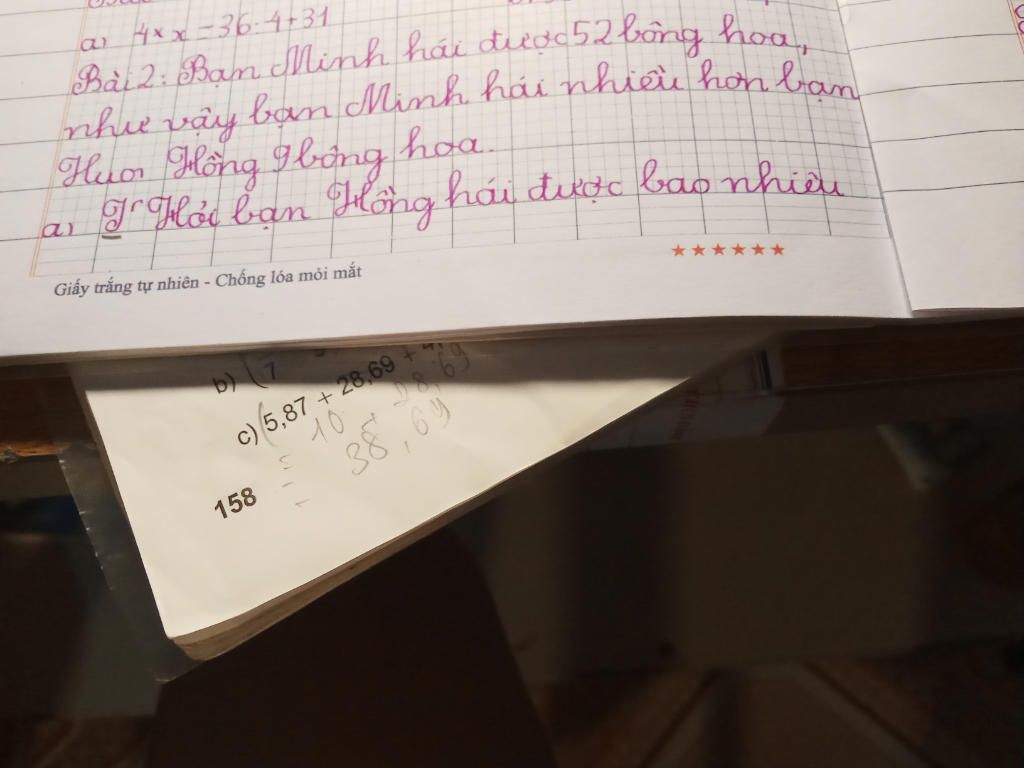 a) 4 × x = 36 : 4 + 31
Bài 2: Bạn Minh hái được 52 bông hoa,
như vậy bạn Minh hái nhiều hơn bạn
Hồng 9 bông hoa.
a) Hỏi bạn Hồng hái được bao nhiêu
★★★★★★
Giấy trắng tự nhiên - Chống lóa mỏi mắt
b) (7
c) (5,87 + 28,69 +
= 10 + 28,69
= 38,69
158